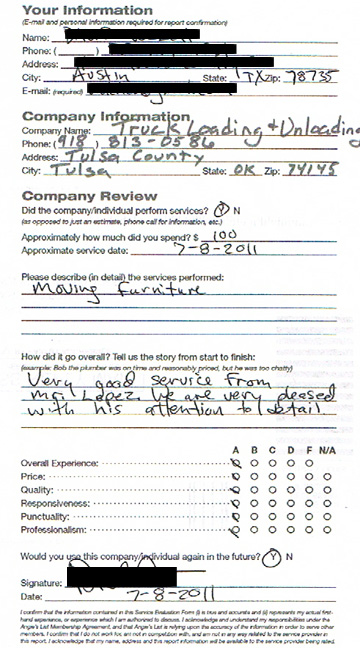 Your Information
(E-mail and personal information required for report confirmation)
Name:
Phone: ( )
Address:
City: Austin State: TX Zip: 78735
E-mail: (required)
Company Information
Company Name: Truck Loading & Unloading
Phone: (918) 813-0586
Address: Tulsa County
City: Tulsa State: OK Zip: 74145
Company Review
Did the company/individual perform services? Y N
(as opposed to just an estimate, phone call for information, etc.)
Approximately how much did you spend? $ 100
Approximate service date: 7-8-2011
Please describe (in detail) the services performed:
Moving Furniture
How did it go overall? Tell us the story from start to finish:
(example: Bob the plumber was on time and reasonably priced, but he was too chatty)
Very good service from
Mr. Lopez. We are very pleased
with his attention to detail.
A B C D F N/A
Overall Experience:
Price:
Quality:
Responsiveness:
Punctuality:
Professionalism:
Would you use this company/individual again in the future? Y N
Signature:
Date: 7-8-2011
I confirm that the information contained in this Service Evaluation Form (i) is true and accurate and (ii) represents my actual first-
hand experience, or experience which I am authorized to discuss. I acknowledge and understand my responsibilities under the
Angie's List Membership Agreement, and that Angie's List is relying upon the accuracy of the information in order to serve other
members. I confirm that I do not work for, am not in competition with, and am not in any way related to the service provider in
this report. I acknowledge that my name, address and this report information will be available to the service provider being rated.